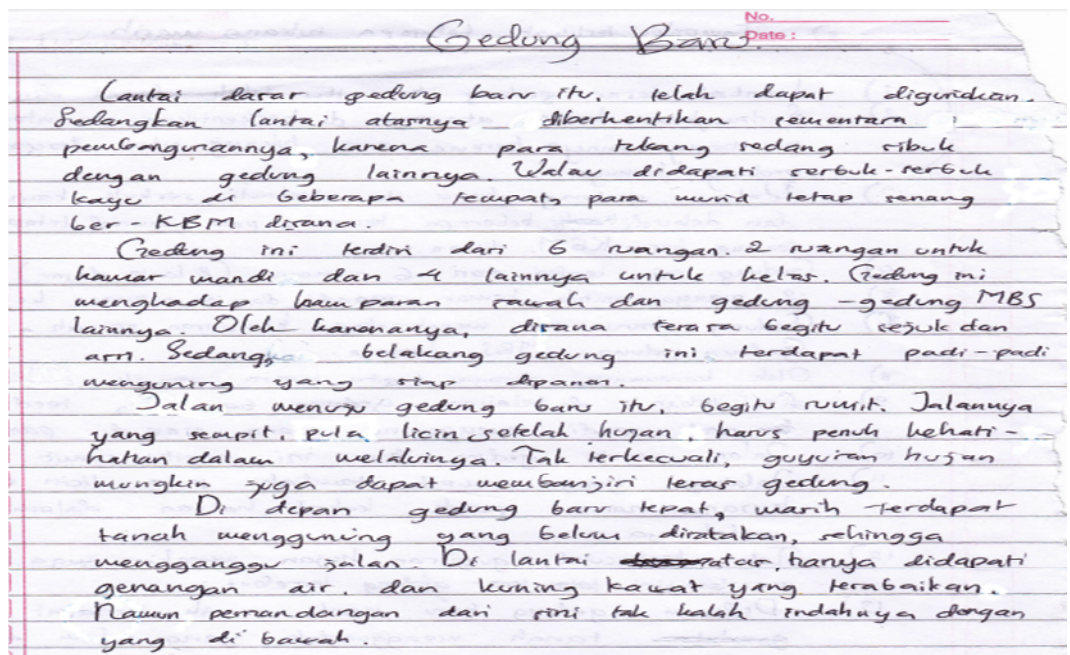 No.
Date :
Gedung Baru.
Lantai dasar gedung baru itu, telah dapat digunakan.
Sedangkan lantai atasnya diberhentikan sementara
pembangunannya, karena para tukang sedang sibuk
dengan gedung lainnya. Walau didapati serbuk-serbuk
kayu di beberapa tempat, para murid tetap senang
ber-KBM disana.
Gedung ini terdiri dari 6 ruangan. 2 ruangan untuk
kamar mandi dan 4 lainnya untuk kelas. Gedung ini
menghadap hamparan sawah dan gedung-gedung MBS
lainnya. Oleh karenanya, disana terasa begitu sejuk dan
asri. Sedang, belakang gedung ini terdapat padi-padi
menguning yang siap dipanen.
Jalan menuju gedung baru itu, begitu rumit. Jalannya
yang sempit, pula licin setelah hujan, harus penuh kehati-
hatian dalam melaluinya. Tak terkecuali, guyuran hujan
mungkin juga dapat membanjiri teras gedung.
Di depan gedung baru tepat, masih terdapat
tanah menggunung yang belum diratakan, sehingga
mengganggu jalan. Di lantai atas, hanya didapati
genangan air, dan kuning kawat yang terabaikan.
Namun pemandangan dari sini tak kalah indahnya dengan
yang di bawah.